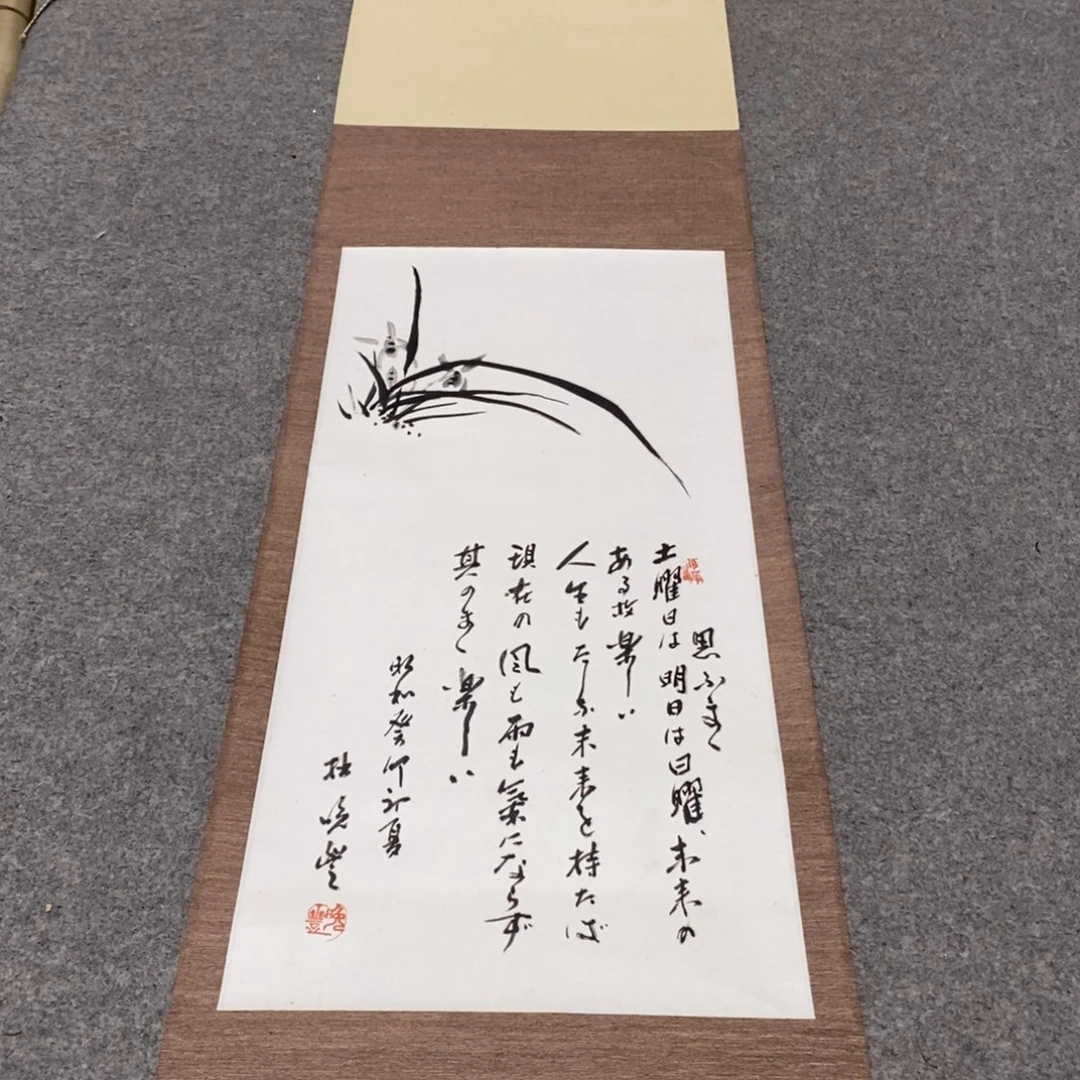 思ふまゝ
土曜日は明日は日曜、未来の
ある故楽しい
人生もたしかな未来を持たば
現在の風も雨も氣にならず
其のまゝ楽しい
昭和癸卯初夏
晩豊
晩豊